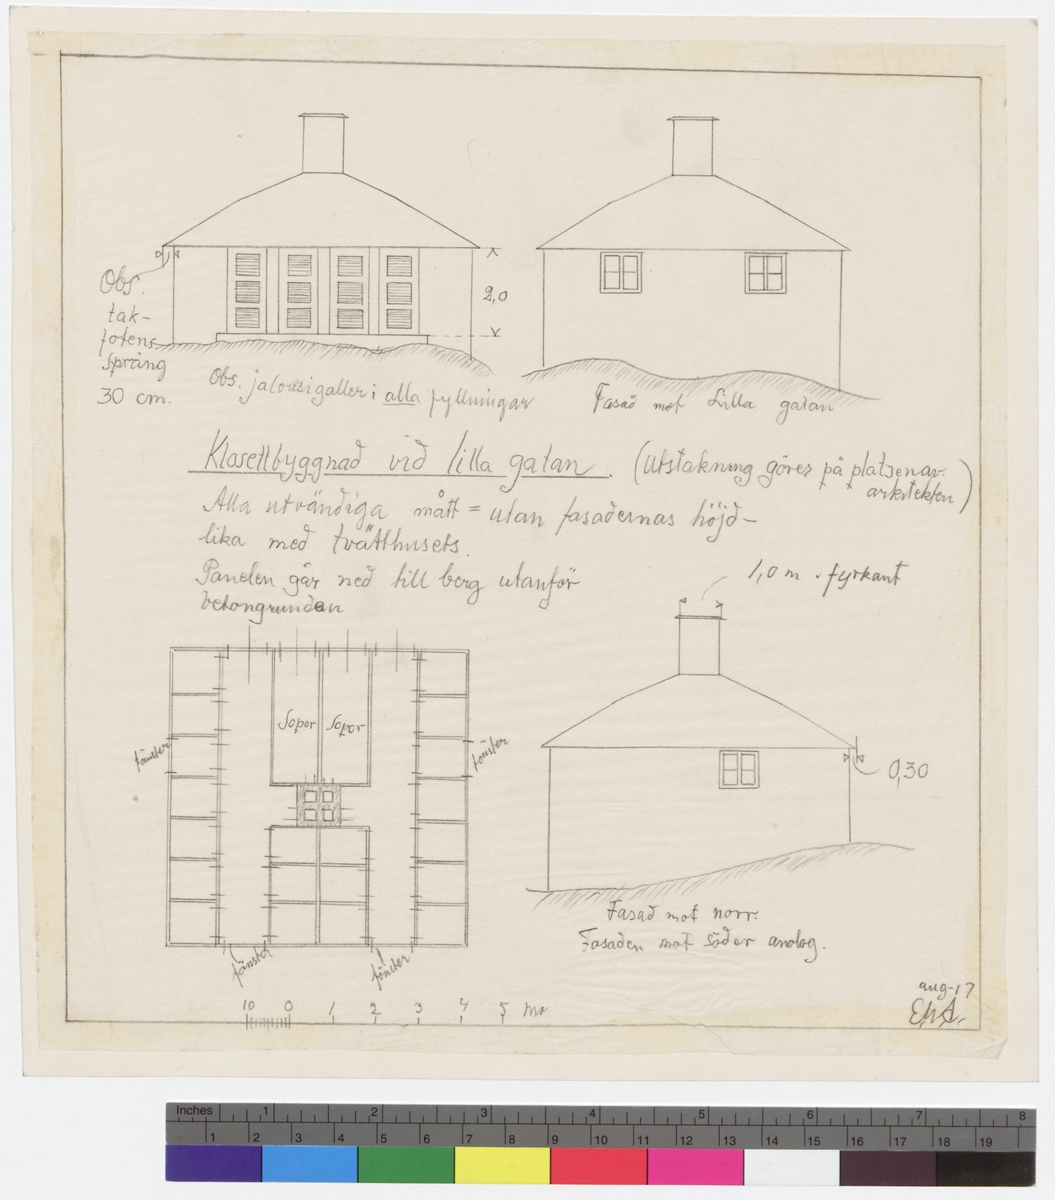 2,0
Obs.
tak-
fotens
språng
30 cm.
Obs. jalousigaller i alla fyllningar
Fasad mot Lilla gatan
Klosettbyggnad vid lilla gatan. (Utstakning göres på platsen av
arkitekten)
Alla utvändiga mått = utan fasadernas höjd-
lika med tvätthusets.
Panelen går ned till berg utanför
betongrunden
1,0 m. fyrkant
Sopor Sopor
fönster
fönster
0,30
Fasad mot norr.
Fasaden mot söder analog.
fönster
fönster
10 0 1 2 3 4 5 mr
aug-17
EGA.
Inches 1 2 3 4 5 6 7 8
1 2 3 4 5 6 7 8 9 10 11 12 13 14 15 16 17 18 19